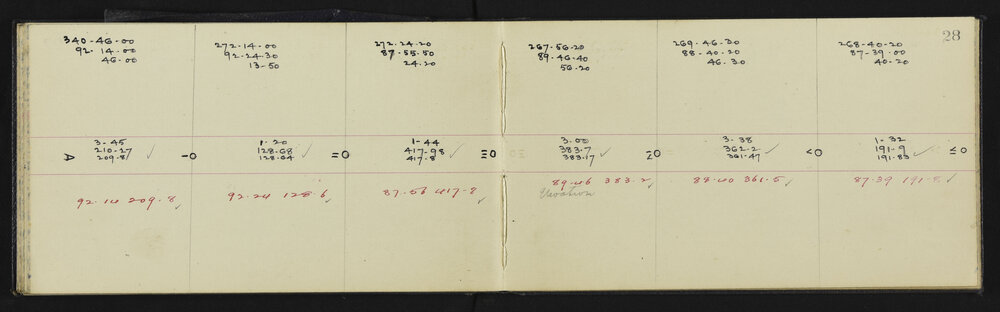 28
340-46-00
92.14.00
46.00
272-14-00
92-24.30
13-50
272.24.20
87-55.50
24.20
267-56-20
89-46.40
56.20
269.46.30
88-40.20
46.30
268-40-20
87-39.00
40-20
3-45
210-27
209.8
-0
1.20
128.68
128.64
=0
1-44
417-98
417-8
≡0
3.00
383.7
383.17
3-38
362.2
361.47
<0
1.32
191-9
191.83
≤0
92-14 209-8
92-24 128-6
87-56 417-8
89-46 383-2
Elevation
88-40 361-5
87-39 191-8